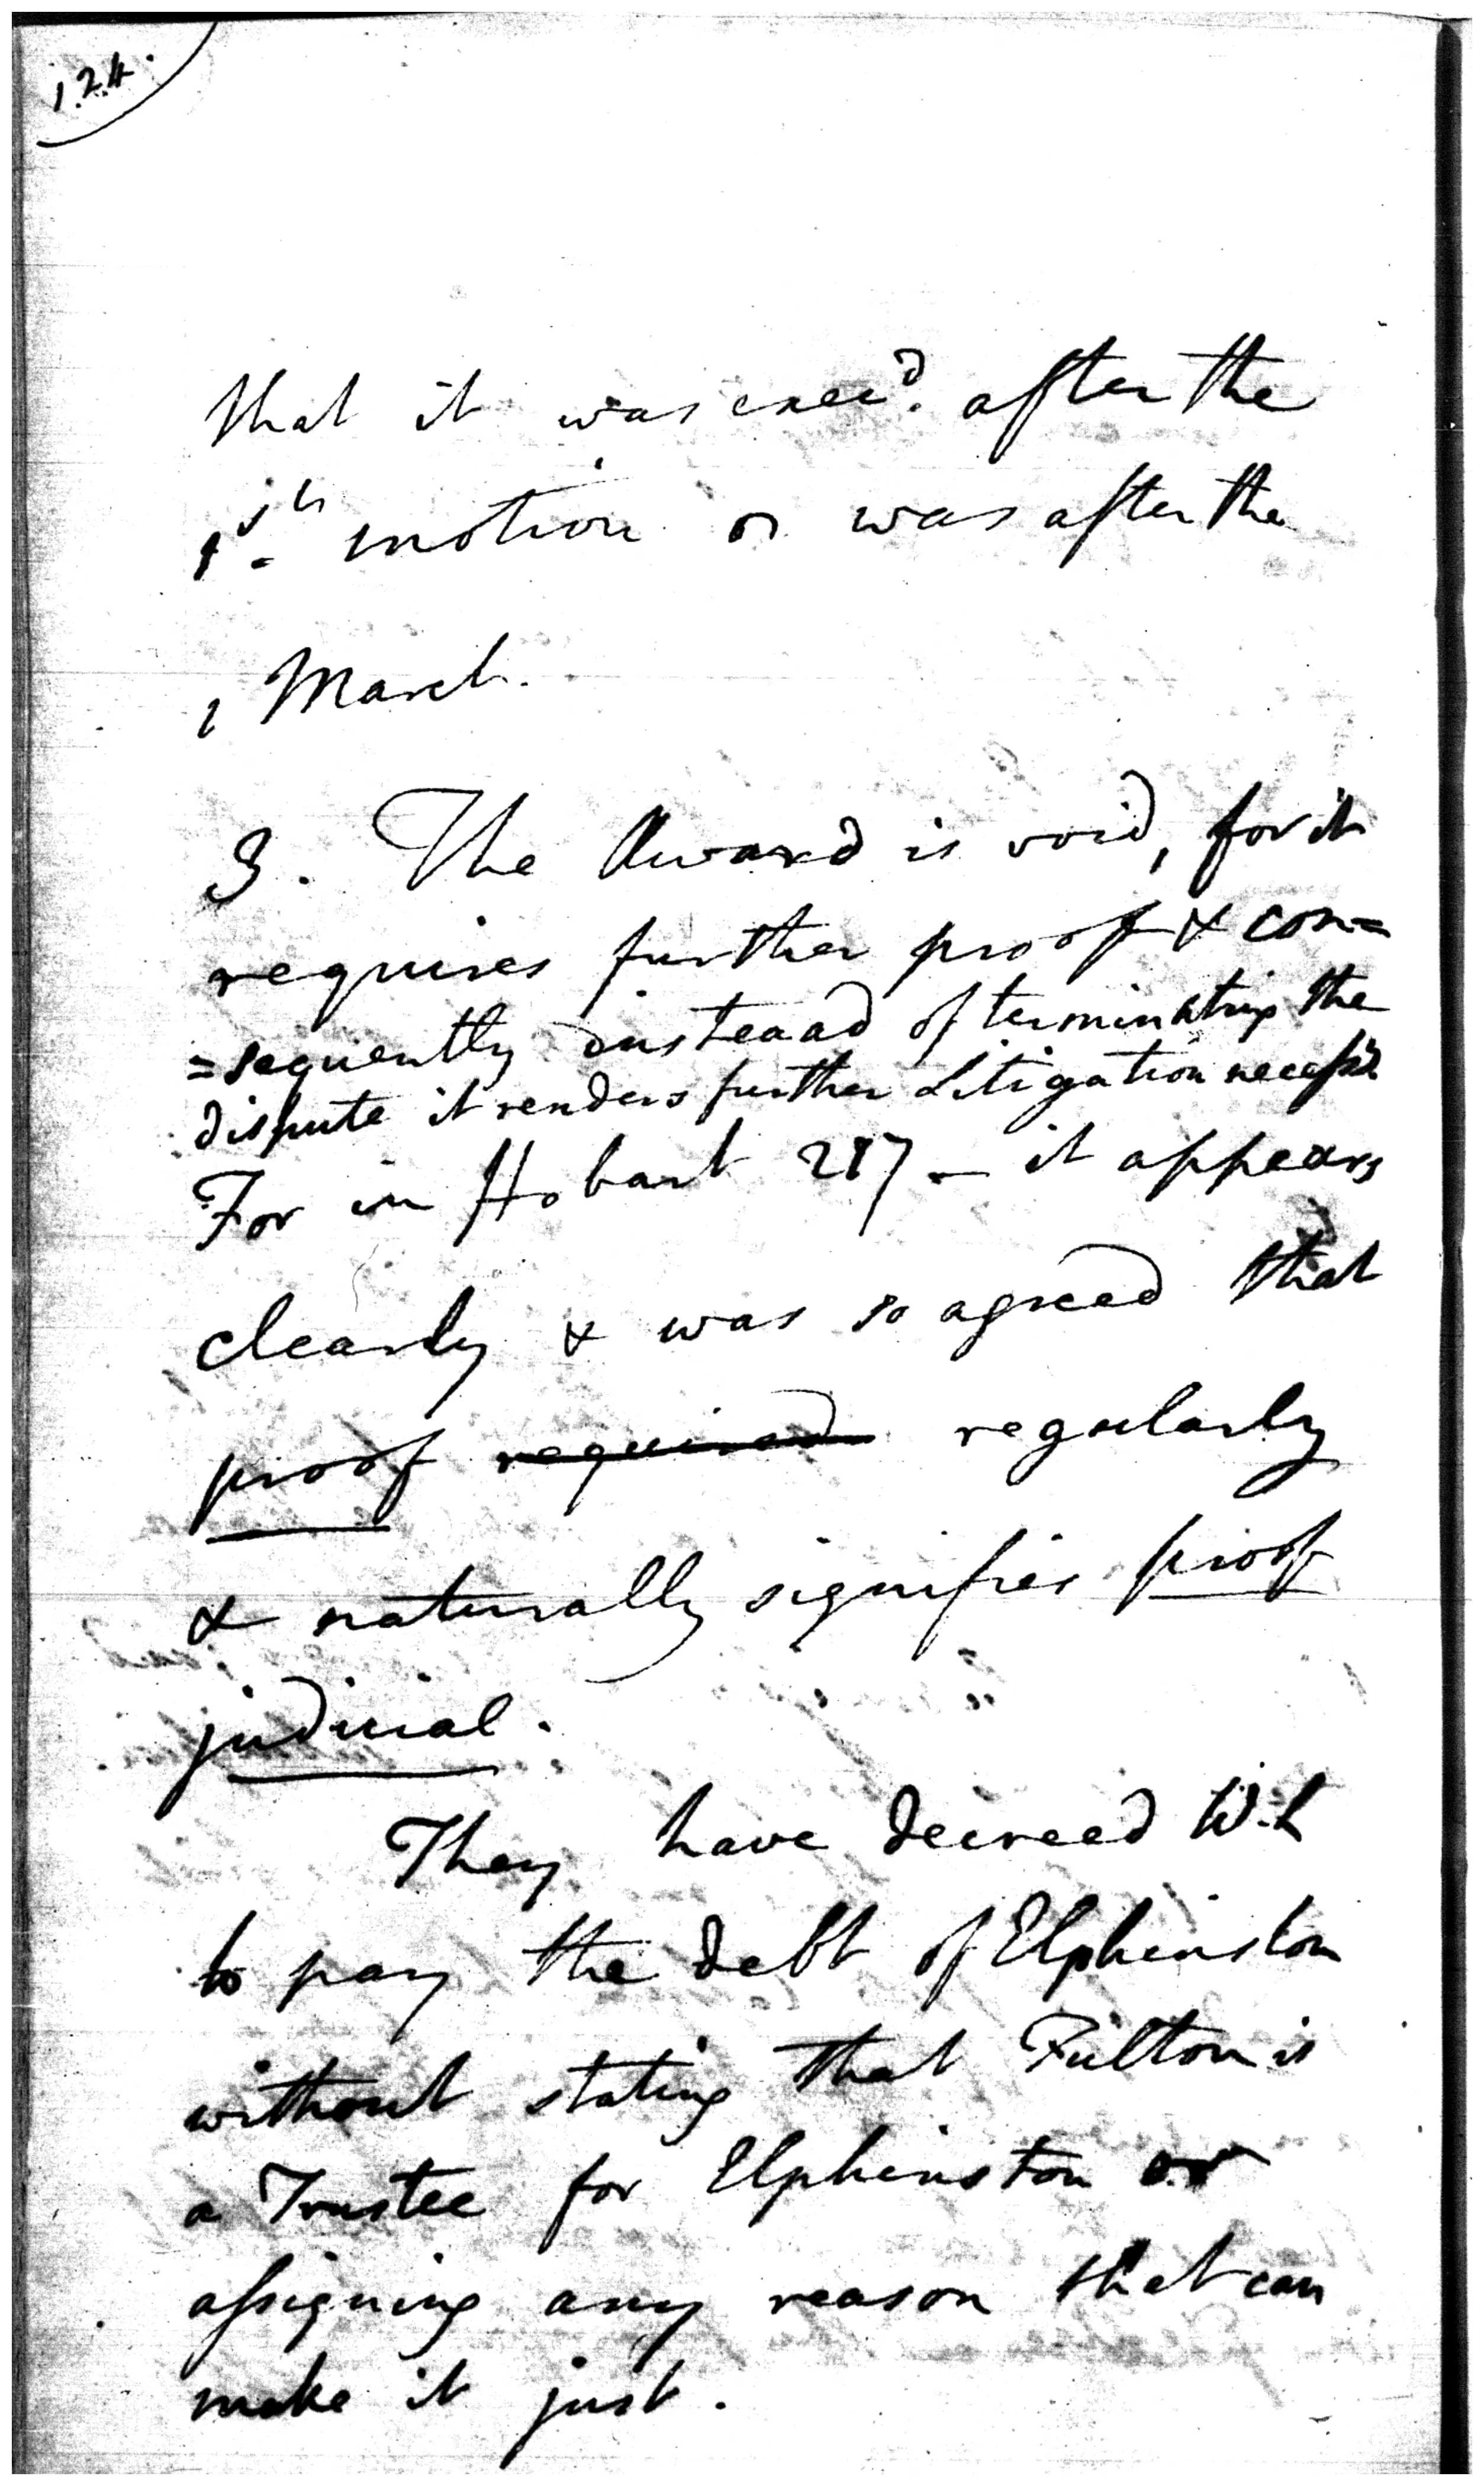 124.
that it was exec'd. after the
1st motion or was after the
1 March.
3. The Award is void, for it
requires further proof & con=
=sequently insteaad of terminating the
dispute it renders further Litigation
For in Hobart 217 - it appears
clearly & was so agreed that
proof required regularly
& naturally signifies proof
judicial.
They have decreed W.L
to pay the debt of Elphinston
without stating that Fulton is
a Trustee for Elphinston or
assigning any reason that can
make it just.